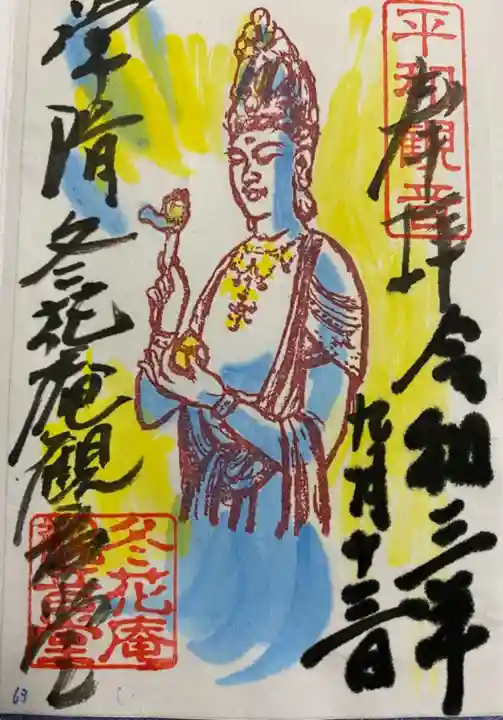 平和観音
奉拝
令和三年
九月十三日
冬花庵観音堂
冬花庵
観音堂
63